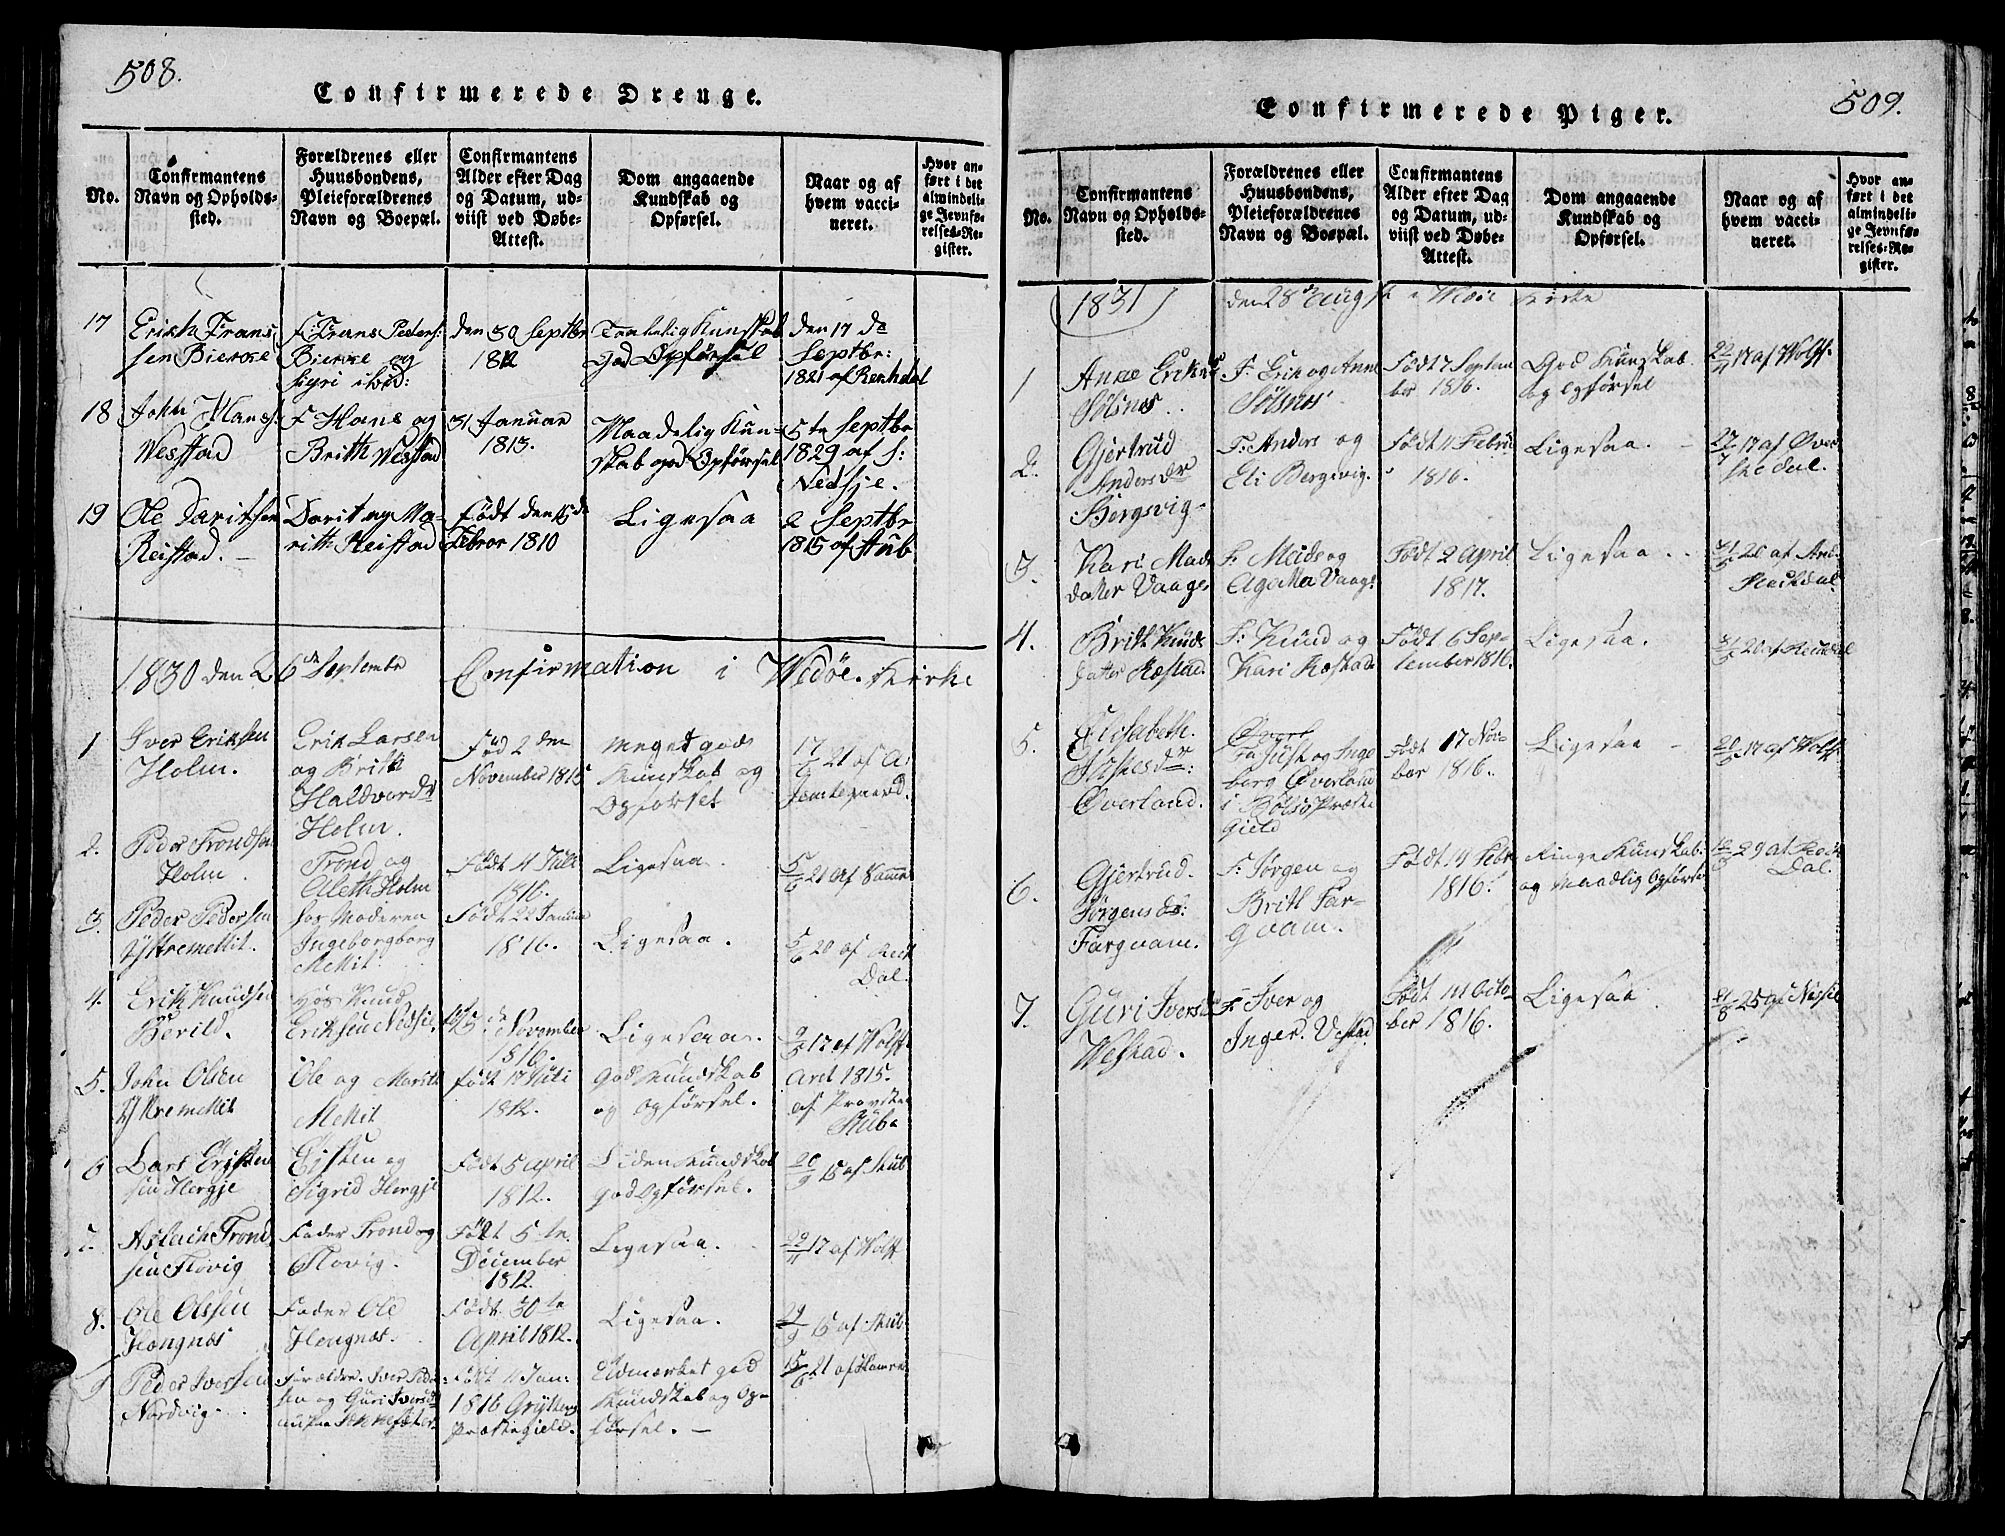 508.
Confirmerede Drenge.
No.
Confirmantens
Navn og Opholds-
sted.
Forældrenes eller
Huusbondens,
Pleieforældrenes
Navn og Boepæl.
Confirmantens
Alder efter Dag
og Datum, ud-
viist ved Døbe-
Attest.
Dom angaaende
Kundskab og
Opførsel.
Naar og af
hvem vacci-
neret.
Hvor an-
ført i det
almindeli-
ge Jevnfø-
relses-Re-
gister.
17
Erich Frans
sen Bieroe
F: Frans Peders:
Bieroe og
Sigri ibid:
den 30 Septbr
1812
Taalelig Kunskab
god Opførsel
den 17 de
Septbr:
1821 af Rechdal
18
John Hans:
Westad
F Hans og
Brith Westad
31 Januar
1813.
Maadelig Kun-
skab god Opførsel
5te Septbr
1829 af S:
Nedsje.
19
Ole
Reistad.
og Ma-
rith Reistad
Født den 15de
Febror 1810
Ligesaa
2 Septbr
1815 af Stub
1830 den 26de Septembr Confirmation i Wedöe Kirke
1
Iver Eriksen
Holm.
Erik Larsen
og Brith
Haldvordsdr
Holm.
Fød 2den
November 1815
meget god
Kundskab og
Opförsel
17/9 21 af
2.
Peder Trondsen
Holm.
Trond og
Aleth Holm
Født 4 Juli
1816.
Ligesaa.
5/6 21 af
3.
Peder Pedersen
Ystremettit.
Moderen
Ingeborg
Mettit.
Født 22 Januar
1816.
Ligesaa.
5/6 20 af Reck
Dal.
4.
Erik Knudsen
Berild.
hos Knud
Eriksen Nedsie
November
1816.
Ligesaa.
9/5 17 af Wolff
5.
John Olsen
Ystremettit
Ole og Marith
Mettit
født 17 Juli
1812.
God Kundskab
og Opførsel.
Aret 1815.
af Provsten
Stub.
6
Lars Eysten
sen Hergje
Eysten og
Sigrid Hergje
Født 5 April
1812.
Liden Kundskab
god Opførsel.
20/9 15 af Stub
7.
Aslach Trond
sen Flovig
Fader Trond og
Flovig.
Født 5te
December
1812.
Ligesaa.
29/4 17 af Wolff
8.
Ole Olssen
Hangnæs
Fader Ole
Hougnæs.
Født 30te
April 1812.
Ligesaa.
29/9 15 af Stub
9
Peder Iversen
Nordvig.
Forældre. Iver Peder
sen og Guri Iversdr
Født 4 Jan:
1816 Grytten
Præstegield.
Udmærket god
Kundskab og Op-
førsel.
15/6 21 af
509.
Confirmerede Piger.
No.
Confirmantens
Navn og Opholds-
sted.
Forældrenes eller
Huusbondens,
Pleieforældrenes
Navn og Boepæl.
Confirmantens
Alder efter Dag
og Datum, ud-
viist ved Døbe-
Attest.
Dom angaaende
Kundskab og
Opførsel.
Naar og af
hvem vacci-
neret.
Hvor an-
ført i det
almindeli-
ge Jevnfø-
relses-Re-
gister.
1831 den 28de Augst i Wedöe Kirke
1
Anne Eriksdr
Sølsnes.
F. Erik og Anne
Sølsnes
Født 7 Septem
ber 1816.
God Kunskab.
og Opførsel
22/4 17 af Wolff.
2.
Gjertrud
Andersdr
Bergsvig.
F. Anders og
Eli Bergsvig.
Født 4 Febru
1816.
Ligesaa.
27/7 17 af
3.
Kari Mads
datter Vaage.
F. Mads og
Agatha Vaage
Født 2 April
1817.
Ligesaa.
20 af
4.
Britt Knuds
datter Hæstad.
F: Knud og
Kari Hæstad
Født 6 Sep-
tember 1816.
Ligesaa.
20 af Rechdal
5.
Elisabeth.
Øverland.
Just og Inge
borg Øverland
i Bolsø Præste
Gield
Født 17 Nov-
ber 1816.
Ligesaa
20/5 17 af Wolff
6.
Gjertrud.
Jørgensdr:
Fargvam.
F. Jørgen og
Britt Far-
gvam.
Født 14 Febr
1816.
Ringe Kunskab.
og Maadlig Opførsel
29 af Reck
Dal.
7.
Guri Iversdr
Westad.
F. Iver og
Inger. Vestad
Født 14 Octo-
ber 1816.
Ligesaa.
25 af